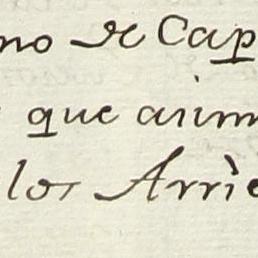 no de Cap
que asim
los Arrie